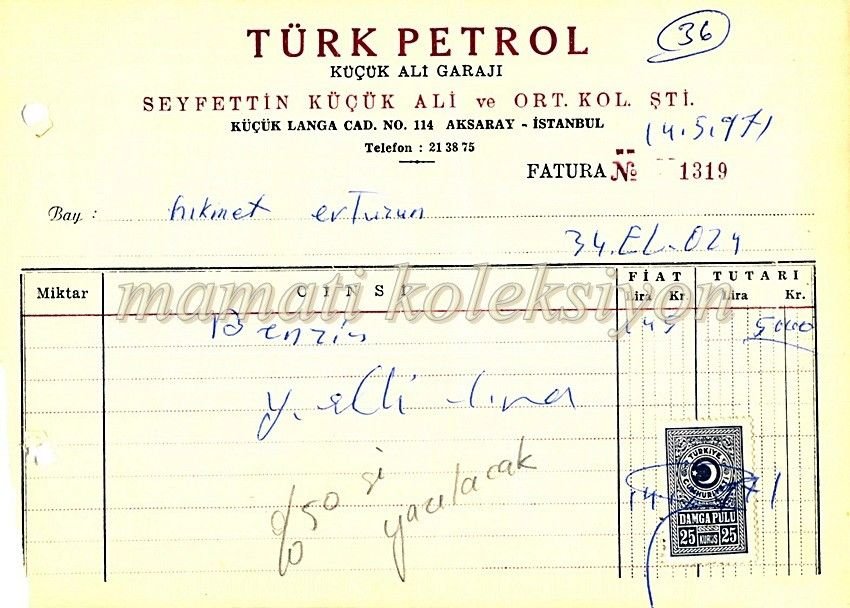 TÜRK PETROL
36
KÜÇÜK ALİ GARAJI
SEYFETTİN KÜÇÜK ALİ ve ORT. KOL. ŞTİ.
KÜÇÜK LANGA CAD. NO. 114 AKSARAY - İSTANBUL
14.5.971
Telefon : 21 38 75
FATURA № 1319
Bay : hikmet erTuzun
34.EL.024
Miktar CİNSİ FİAT TUTARI
Lira Kr. Lira Kr.
mamati koleksiyon
Benzin 145 5000
Y. elli lira
%50 si
yazılacak
TÜRKİYE CUMHURİYETİ
14.5.971
DAMGA PULU
25 KURUŞ 25